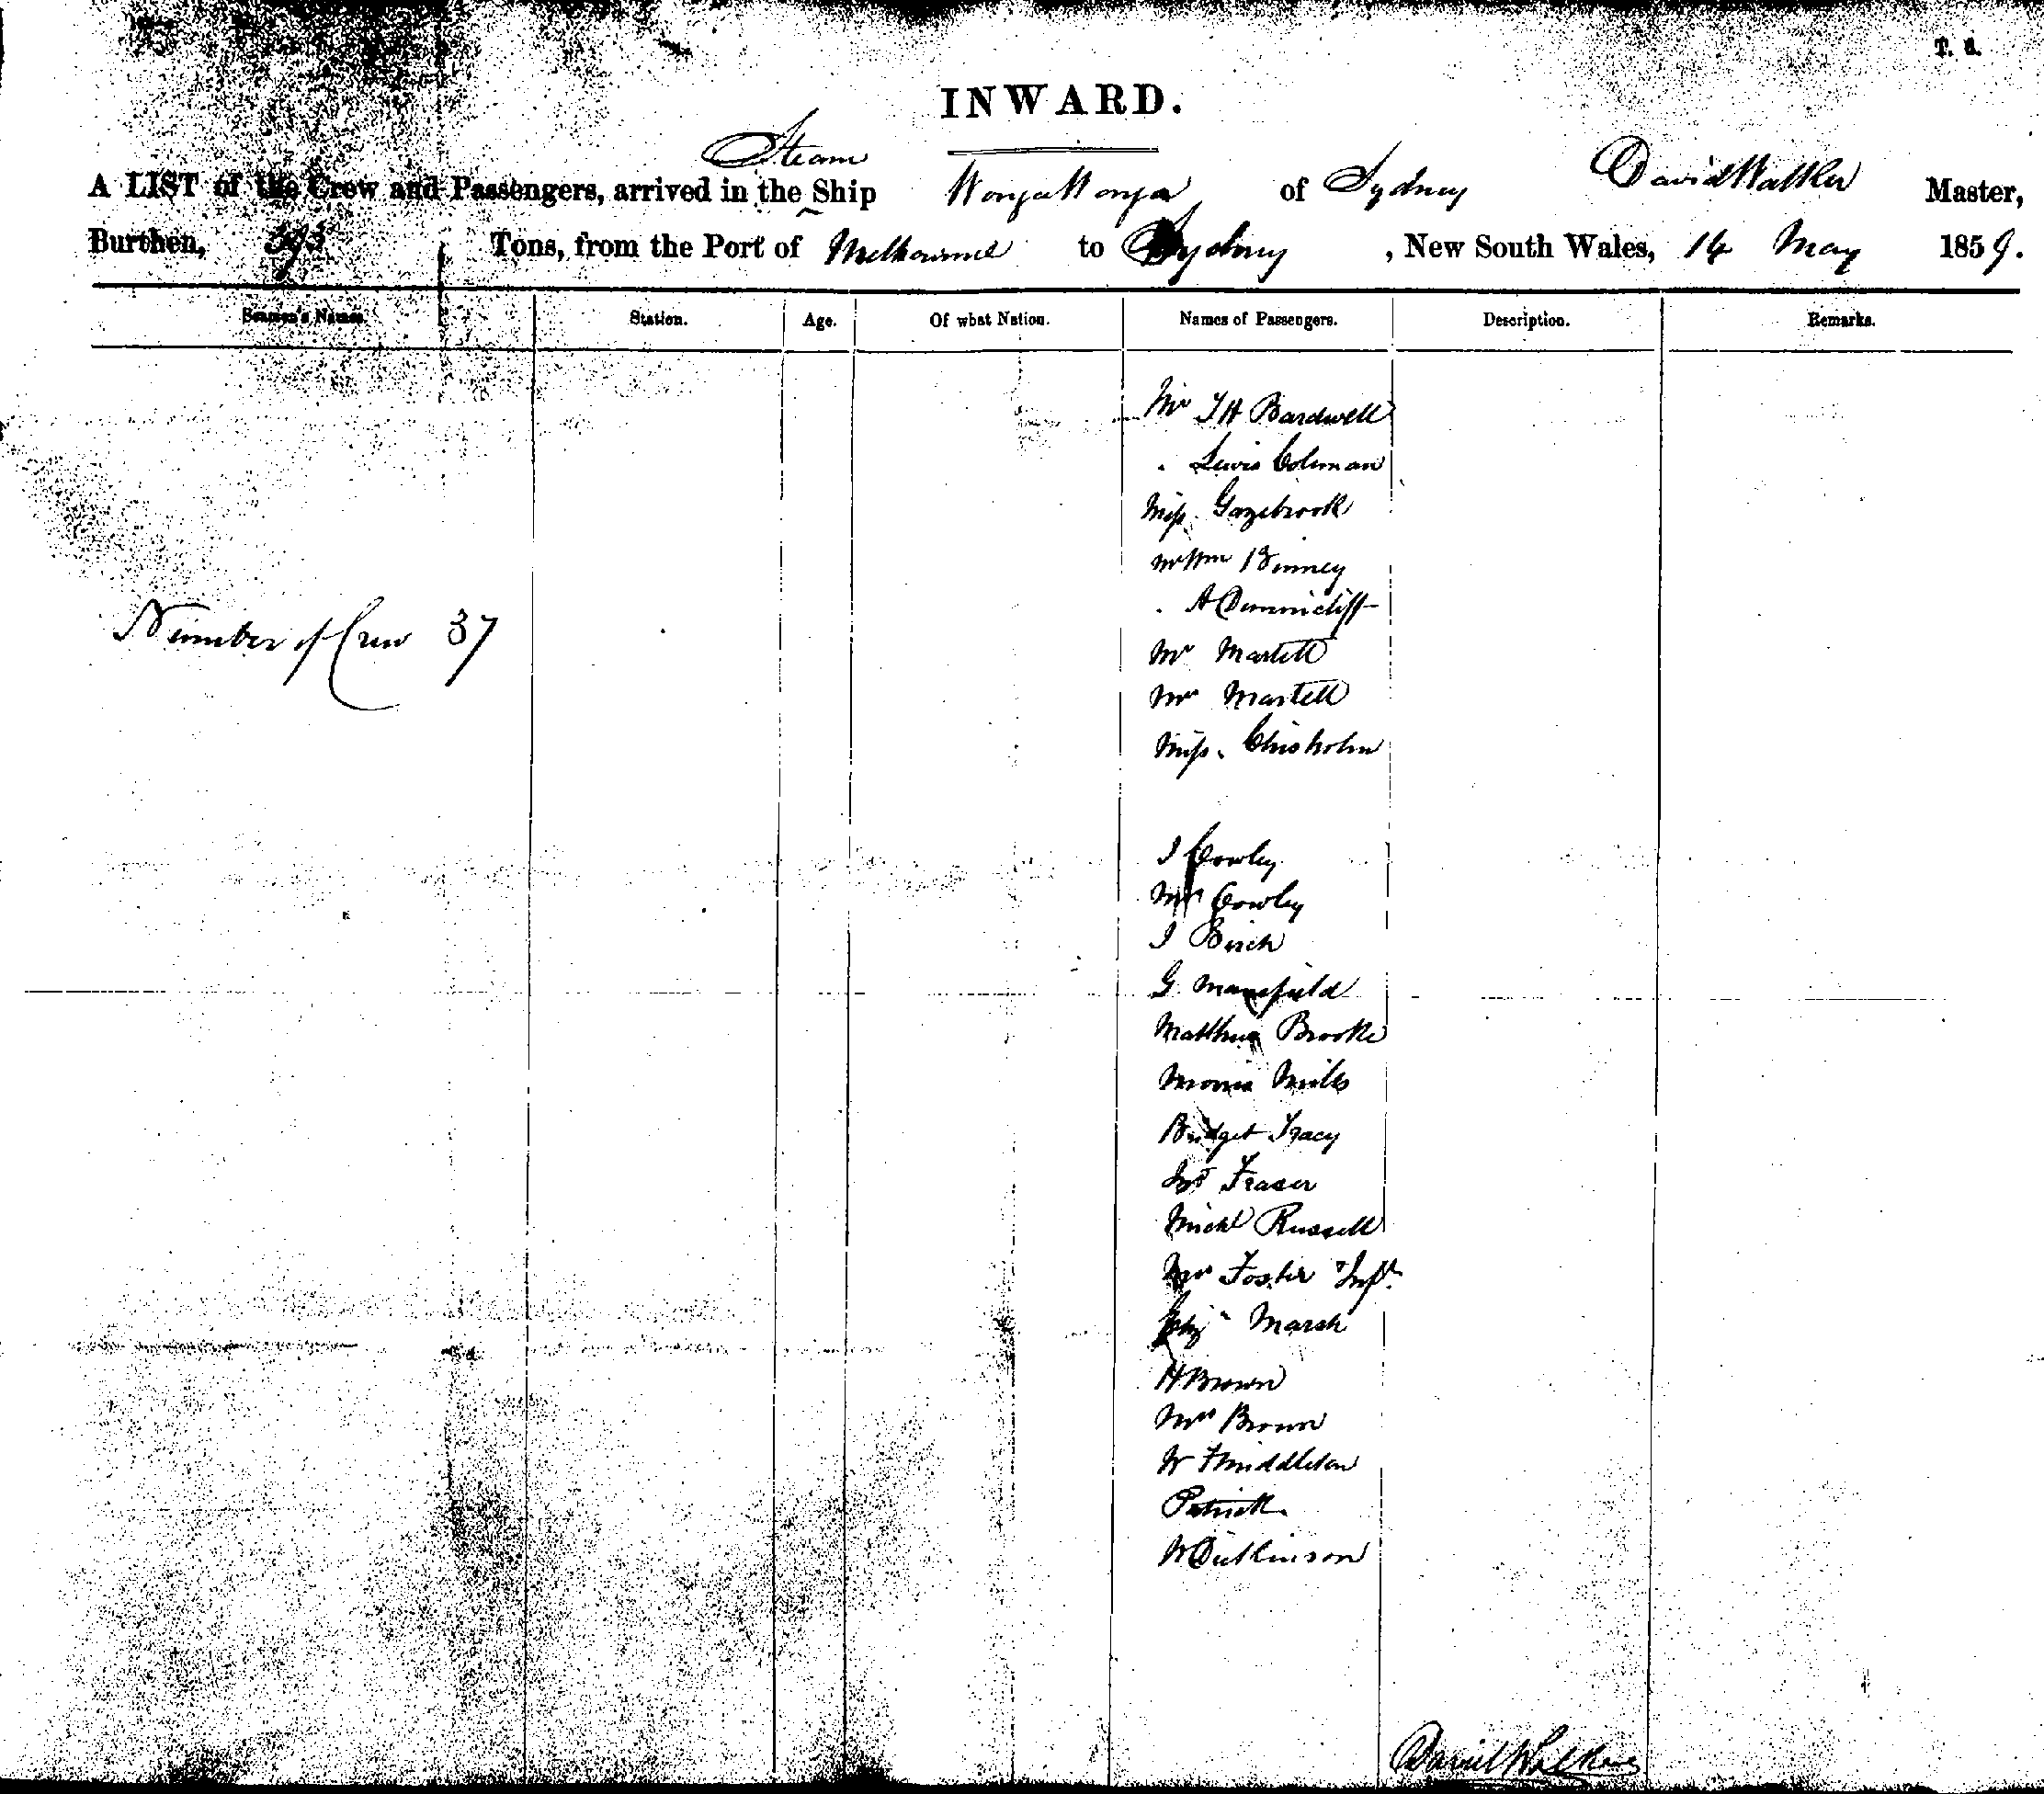 T. S.
INWARD.
A LIST of the Crew and Passengers, arrived in the Steam Ship Wonga Wonga of Sydney David Walker Master,
Burthen, 393 Tons, from the Port of Melbourne to Sydney, New South Wales, 14 May 1859.
Seamen's Names. Station. Age. Of what Nation. Names of Passengers. Description. Remarks.
Mr T H Bardwell
. Lewis Coleman
Miss Gazebrook
Mr Wm Binney
. A Cunnicliff
Number of Crew 37
Mr Martell
Mrs Martell
Miss. Chisholm
J Cowley
Mrs Cowley
J Birch
G Mansfield
Matthew Brooke
Morris Mills
Bridget Tracy
Jas Fraser
Michl Russell
Mrs Foster & Inft
Marsh
H Brown
Mrs Brown
W Middleton
Patrick
W Dickinson
David Walker